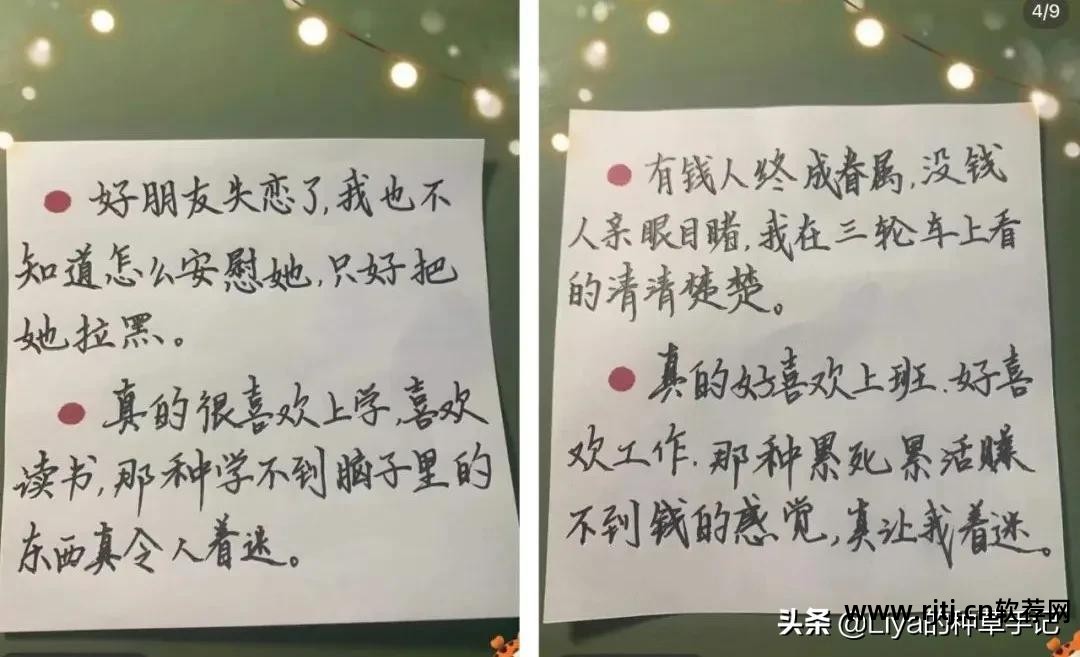 好朋友失恋了,我也不
知道怎么安慰她,只好把
她拉黑。
真的很喜欢上学,喜欢
读书,那种学不到脑子里的
东西真令人着迷。
4/9
有钱人终成眷属,没钱
人亲眼目睹,我在三轮车上看
的清清楚楚。
真的好喜欢上班、好喜
欢工作、那种累死累活赚
不到钱的感觉,真让我着迷。
www.rjtj.cn软荐网
头条 @Liya的种草手记